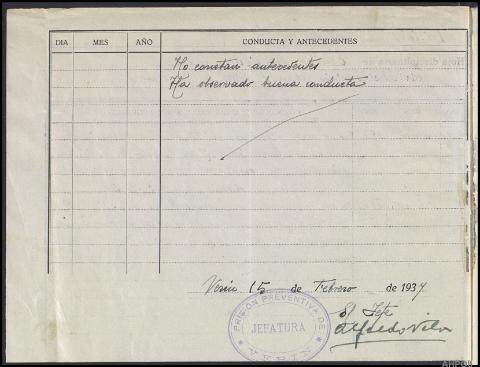 DIA MES AÑO CONDUCTA Y ANTECEDENTES
No constan antecedentes
Ha observado buena conducta
Verín 15 de Febrero de 1937
El Jefe
Alfredo Vila
PRISIÓN PREVENTIVA DE
JEFATURA
VERIN
AHPOU